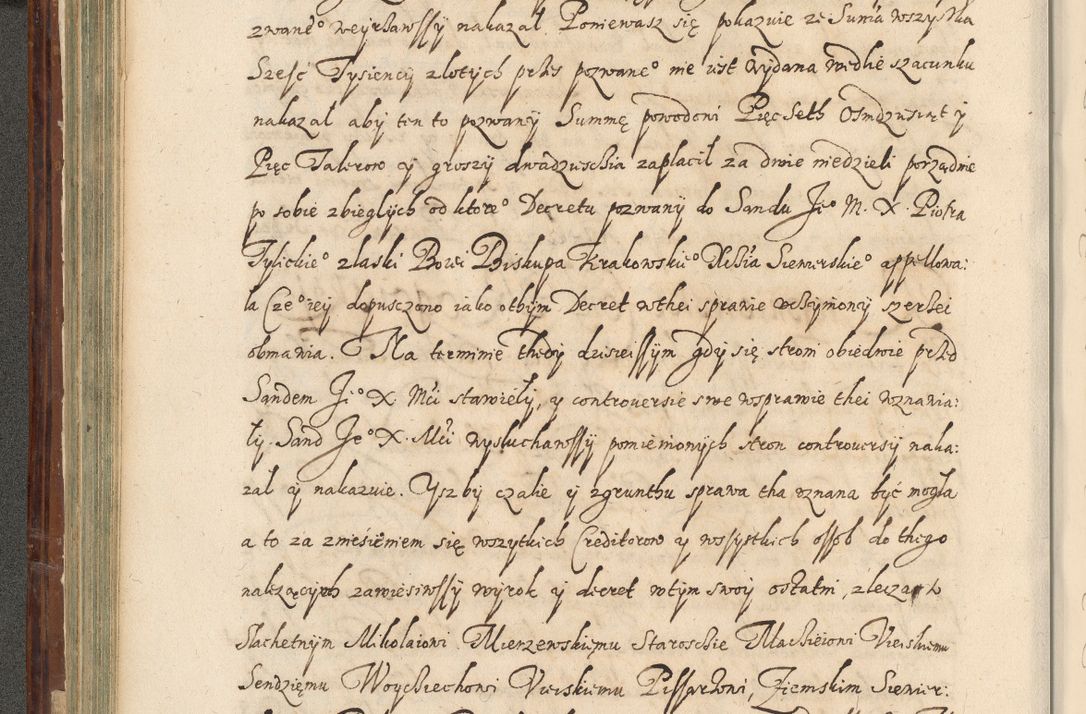 zwane° weyrzawssy nakazał Poniewasz się pokazuie ze Suma wszystka
Szesc Tysiency złotych przes pozwane° nie iest wydana wedlie szacunku
nakazał aby ten to pozwany Summę powodoni Pięc Seth Osmdzusiąt y
Pięc Talerow y groszy dwadzuschia zaplacił za dwie niedzieli porządnie
po sobie zbieglych od ktore° Decretu pozwany do Sandu Je° M. X. Piotra
Tylickie° zlaski Bozei Biskupa Krakowskie° Xchia Siewierskie° appellowa:
la Cze°zey dopusczono iako otbym Decret wthei sprawie uchzymiony szerzei
obmawia. Na terminie thedy dzisieissym gdy się stroni obiedwie przed
Sandem Je° X Mci stawiely, y controuersie swe wsprawie thei wznawia:
ly. Sand Je° X. Mci wysluchawssy pomienionych stron controuersy naka:
zal y nakazuie. Yszby czalie y zgrunthu sprawa tha uznana być mogla
a to za zniesieniem się wszytkich Creditorow y wssystkich ossob do thego
nalezących zawiesiwssy wyrok y decret wtym swoy ostatni, zlecza to
Slachetnym Mikolaiowi Mierzewskiemu Staroschie Machieioni Vieiskiemu
Sendziemu Woychiechowi Vieiskiemu Pissarzowi Ziemskim Siewier: